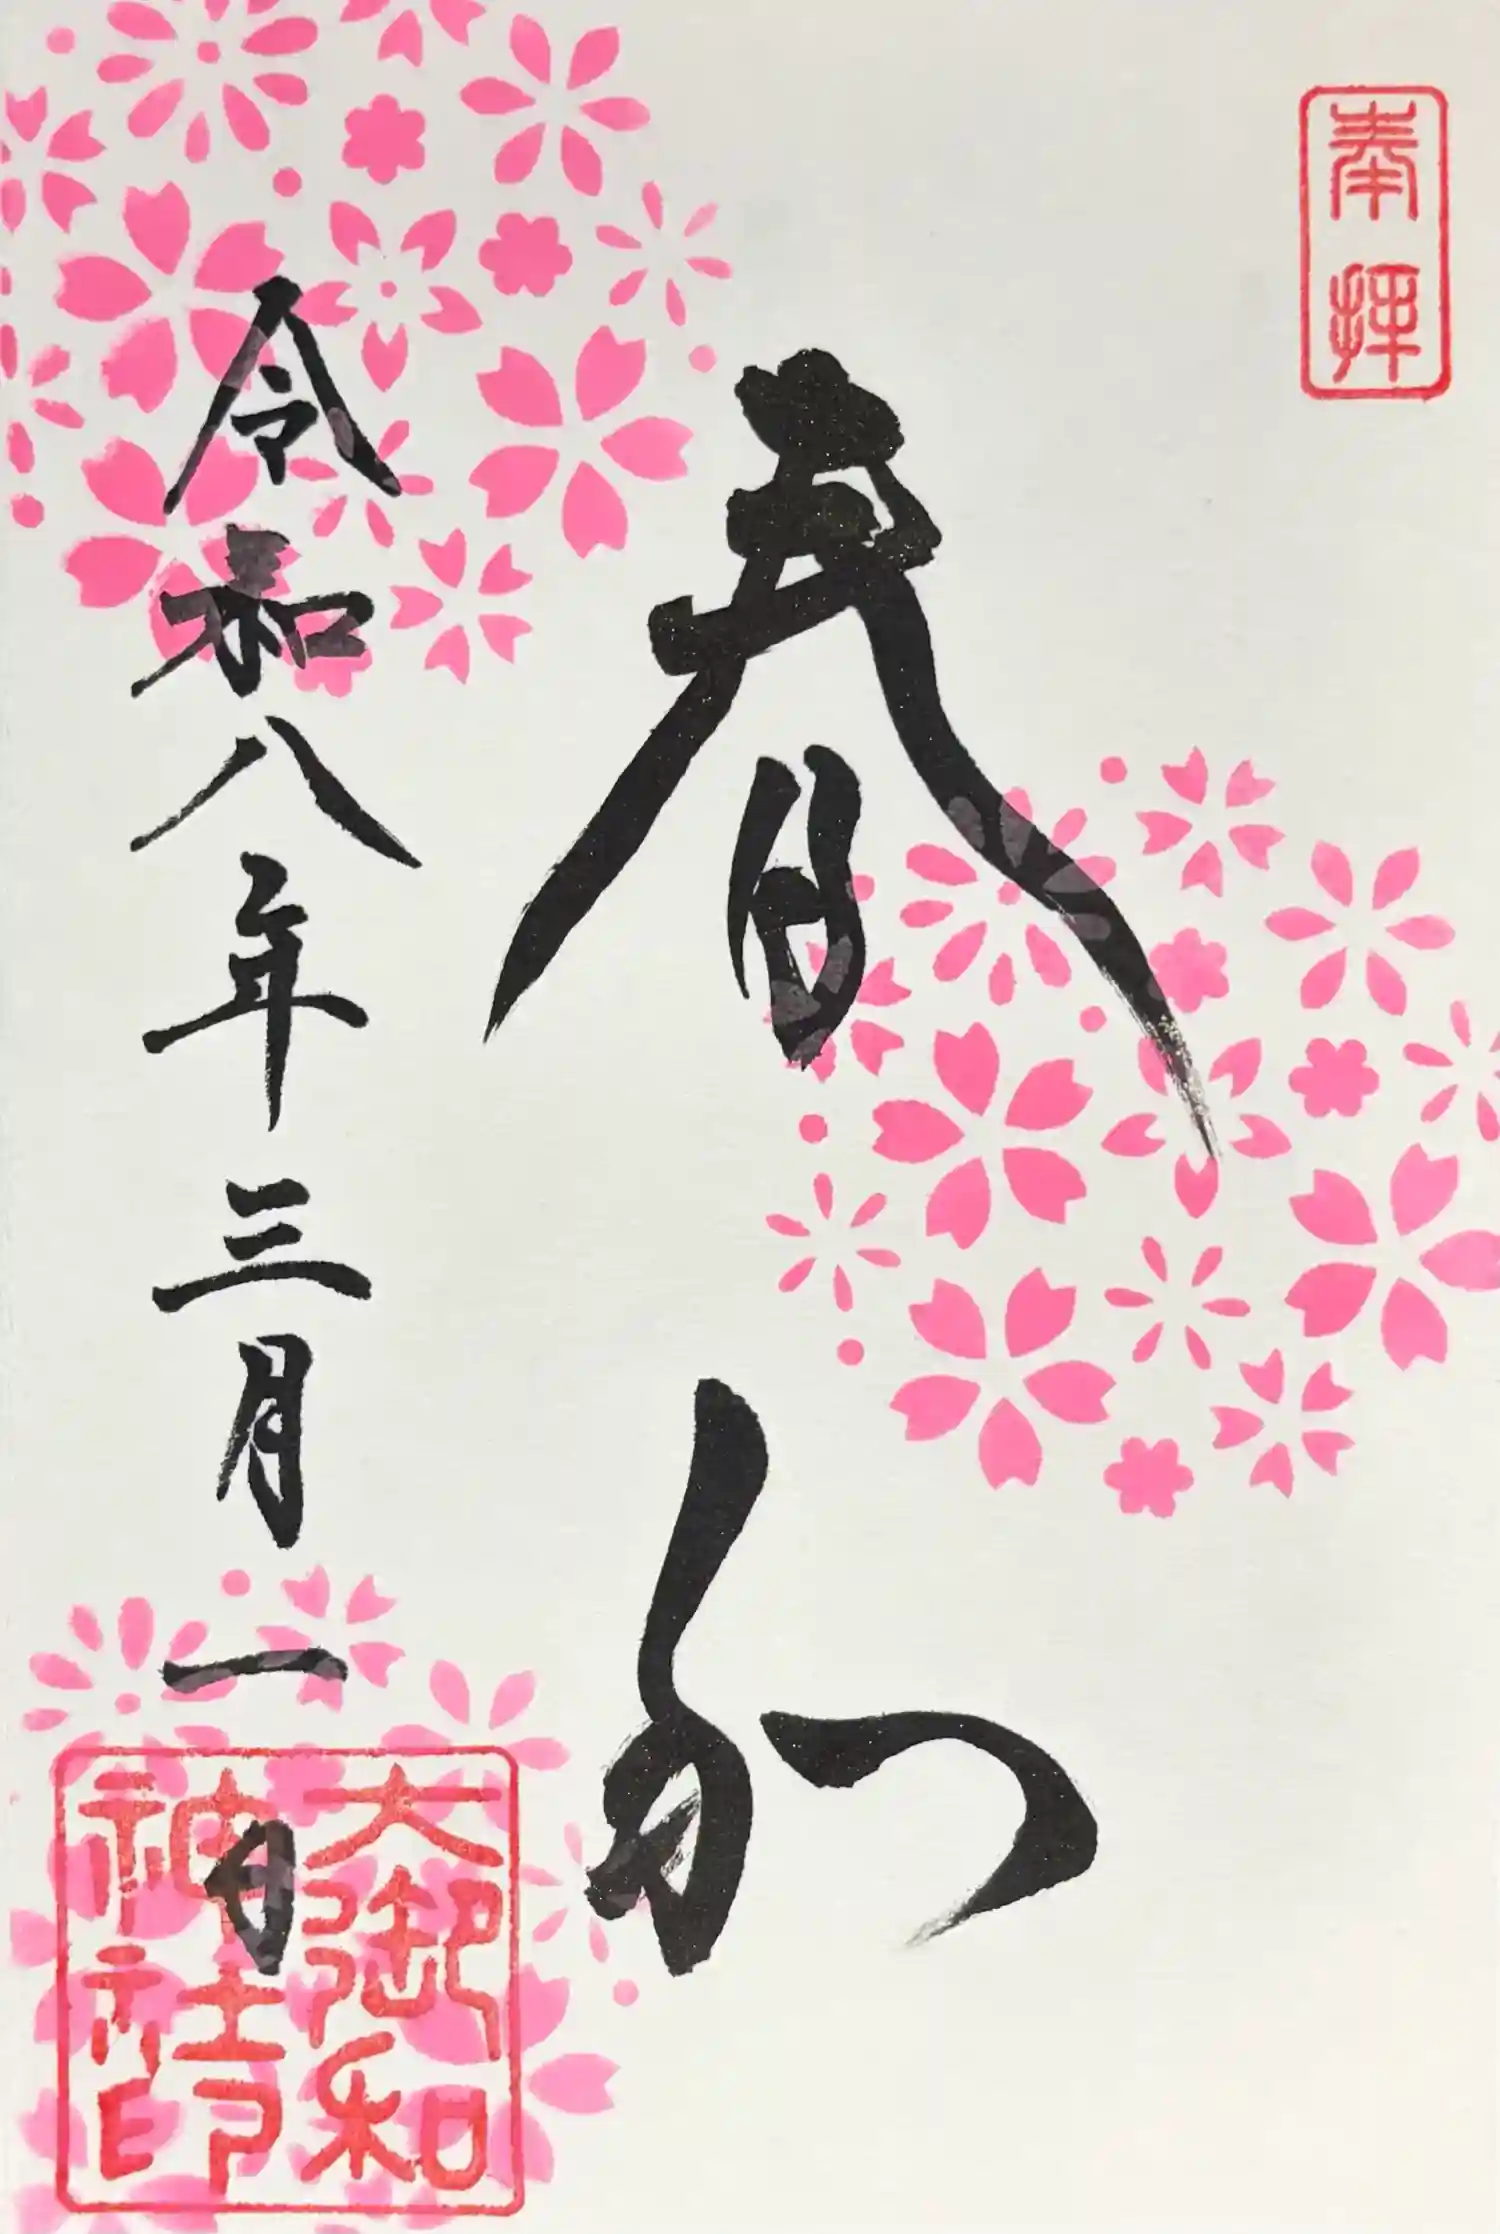 奉拝
春和
令和八年三月一日
大御和
神社印